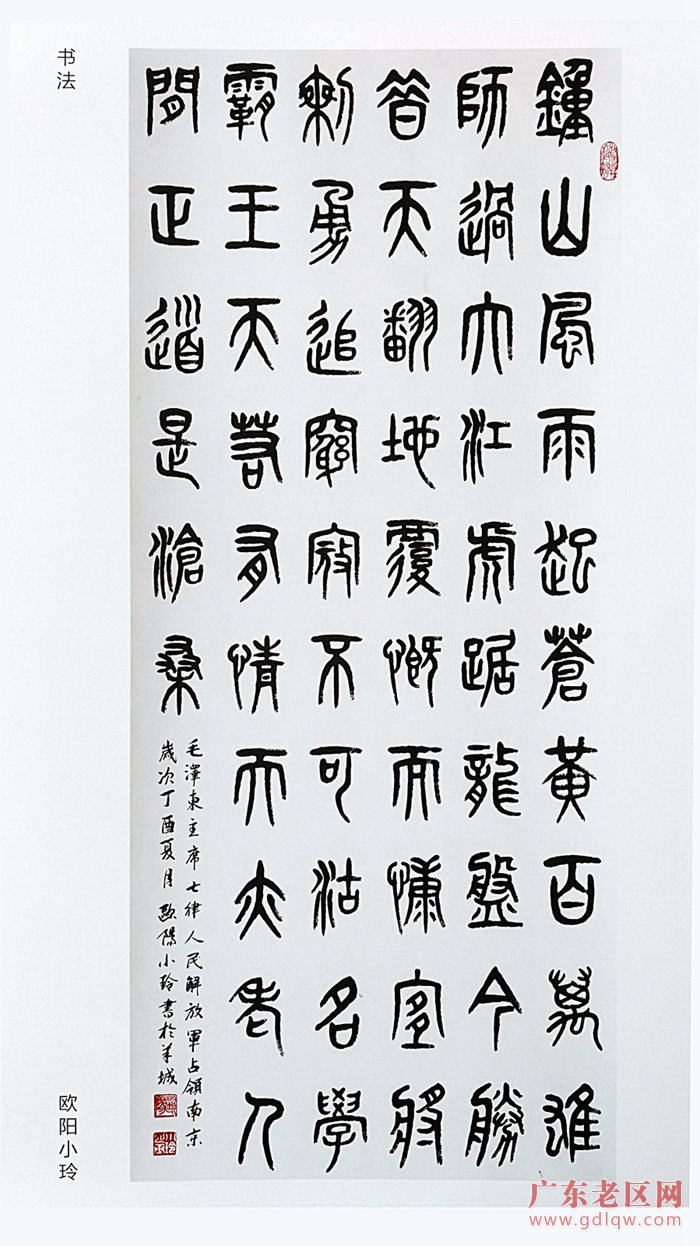 书法
鐘山風雨起蒼黃百萬雄
師過大江虎踞龍盤今勝
昔天翻地覆慨而慷宜將
剩勇追窮寇不可沽名學
霸王天若有情天亦老人
間正道是滄桑
毛澤東主席七律人民解放軍占領南京
歲次丁酉夏月歐陽小玲書於羊城
欧阳小玲
广东老区网
www.gdlqw.com